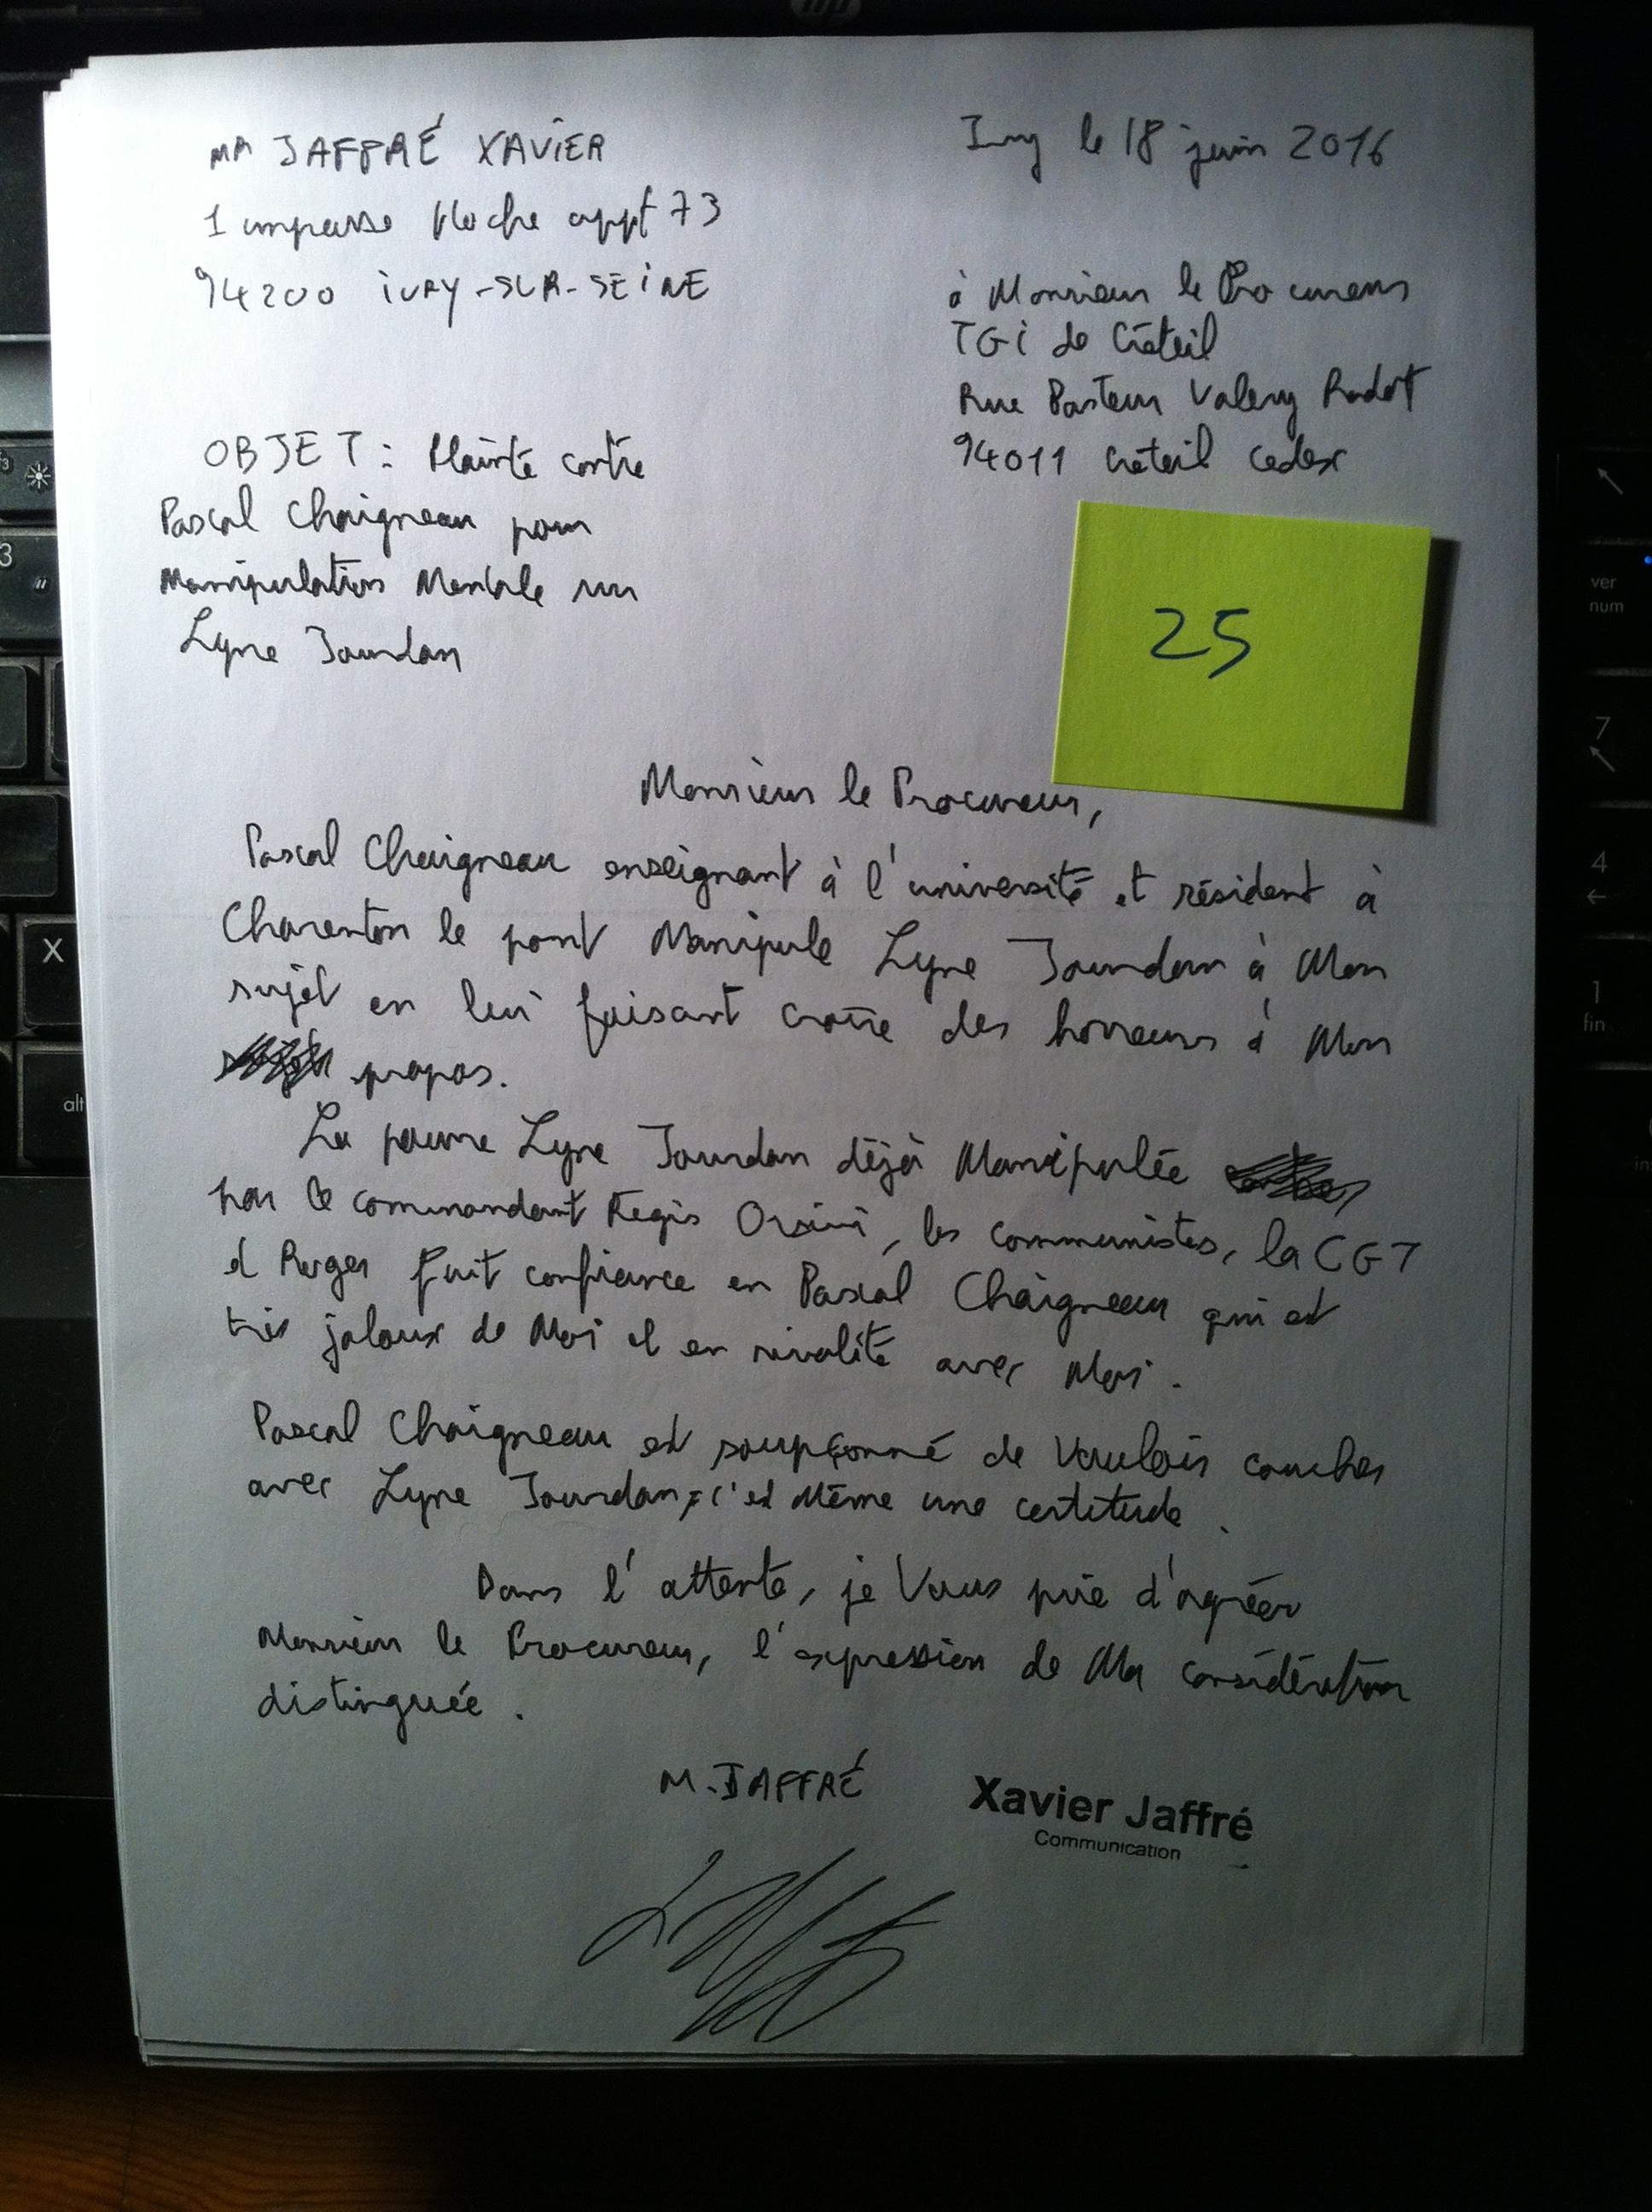 hp
MR JAFFRÉ XAVIER
1 impasse Hoche appt 73
94200 IVRY-SUR-SEINE
Ivry le 18 juin 2016
à Monsieur le Procureur
TGI de Créteil
Rue Pasteur Valery Radot
94011 Créteil cedex
OBJET : Plainte contre
Pascal Chaigneau pour
Manipulation Mentale sur
Lyne Jourdan
25
Monsieur le Procureur,
Pascal Chaigneau enseignant à l'université et résident à
Charenton le pont Manipule Lyne Jourdan à Mon
sujet en lui faisant croire des horreurs à Mon
propos.
La pauvre Lyne Jourdan déjà Manipulée
par le commandant Regis Orsini, les communistes, la CGT
et Roger fait confiance en Pascal Chaigneau qui est
très jaloux de Moi et en rivalité avec Moi.
Pascal Chaigneau est soupçonné de Vouloir coucher
avec Lyne Jourdan, c'est Même une certitude.
Dans l'attente, je Vous prie d'agréer
Monsieur le Procureur, l'expression de Ma considération
distinguée.
M. JAFFRÉ
Xavier Jaffré
Communication
f3
3
"
X
alt
ver
num
7
4
1
fin